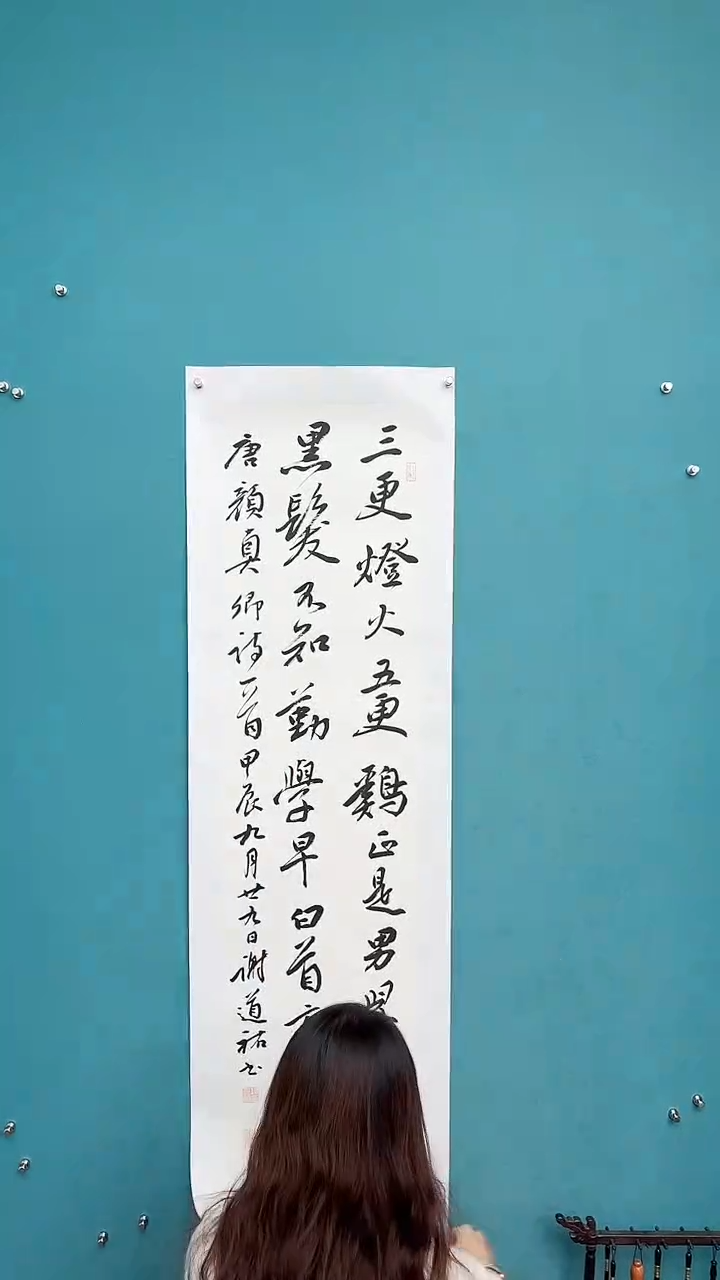 三更燈火五更鷄正是男兒
黑髮不知勤學早白首
唐顏真卿詩一首甲辰九月廿九日謝道祐书